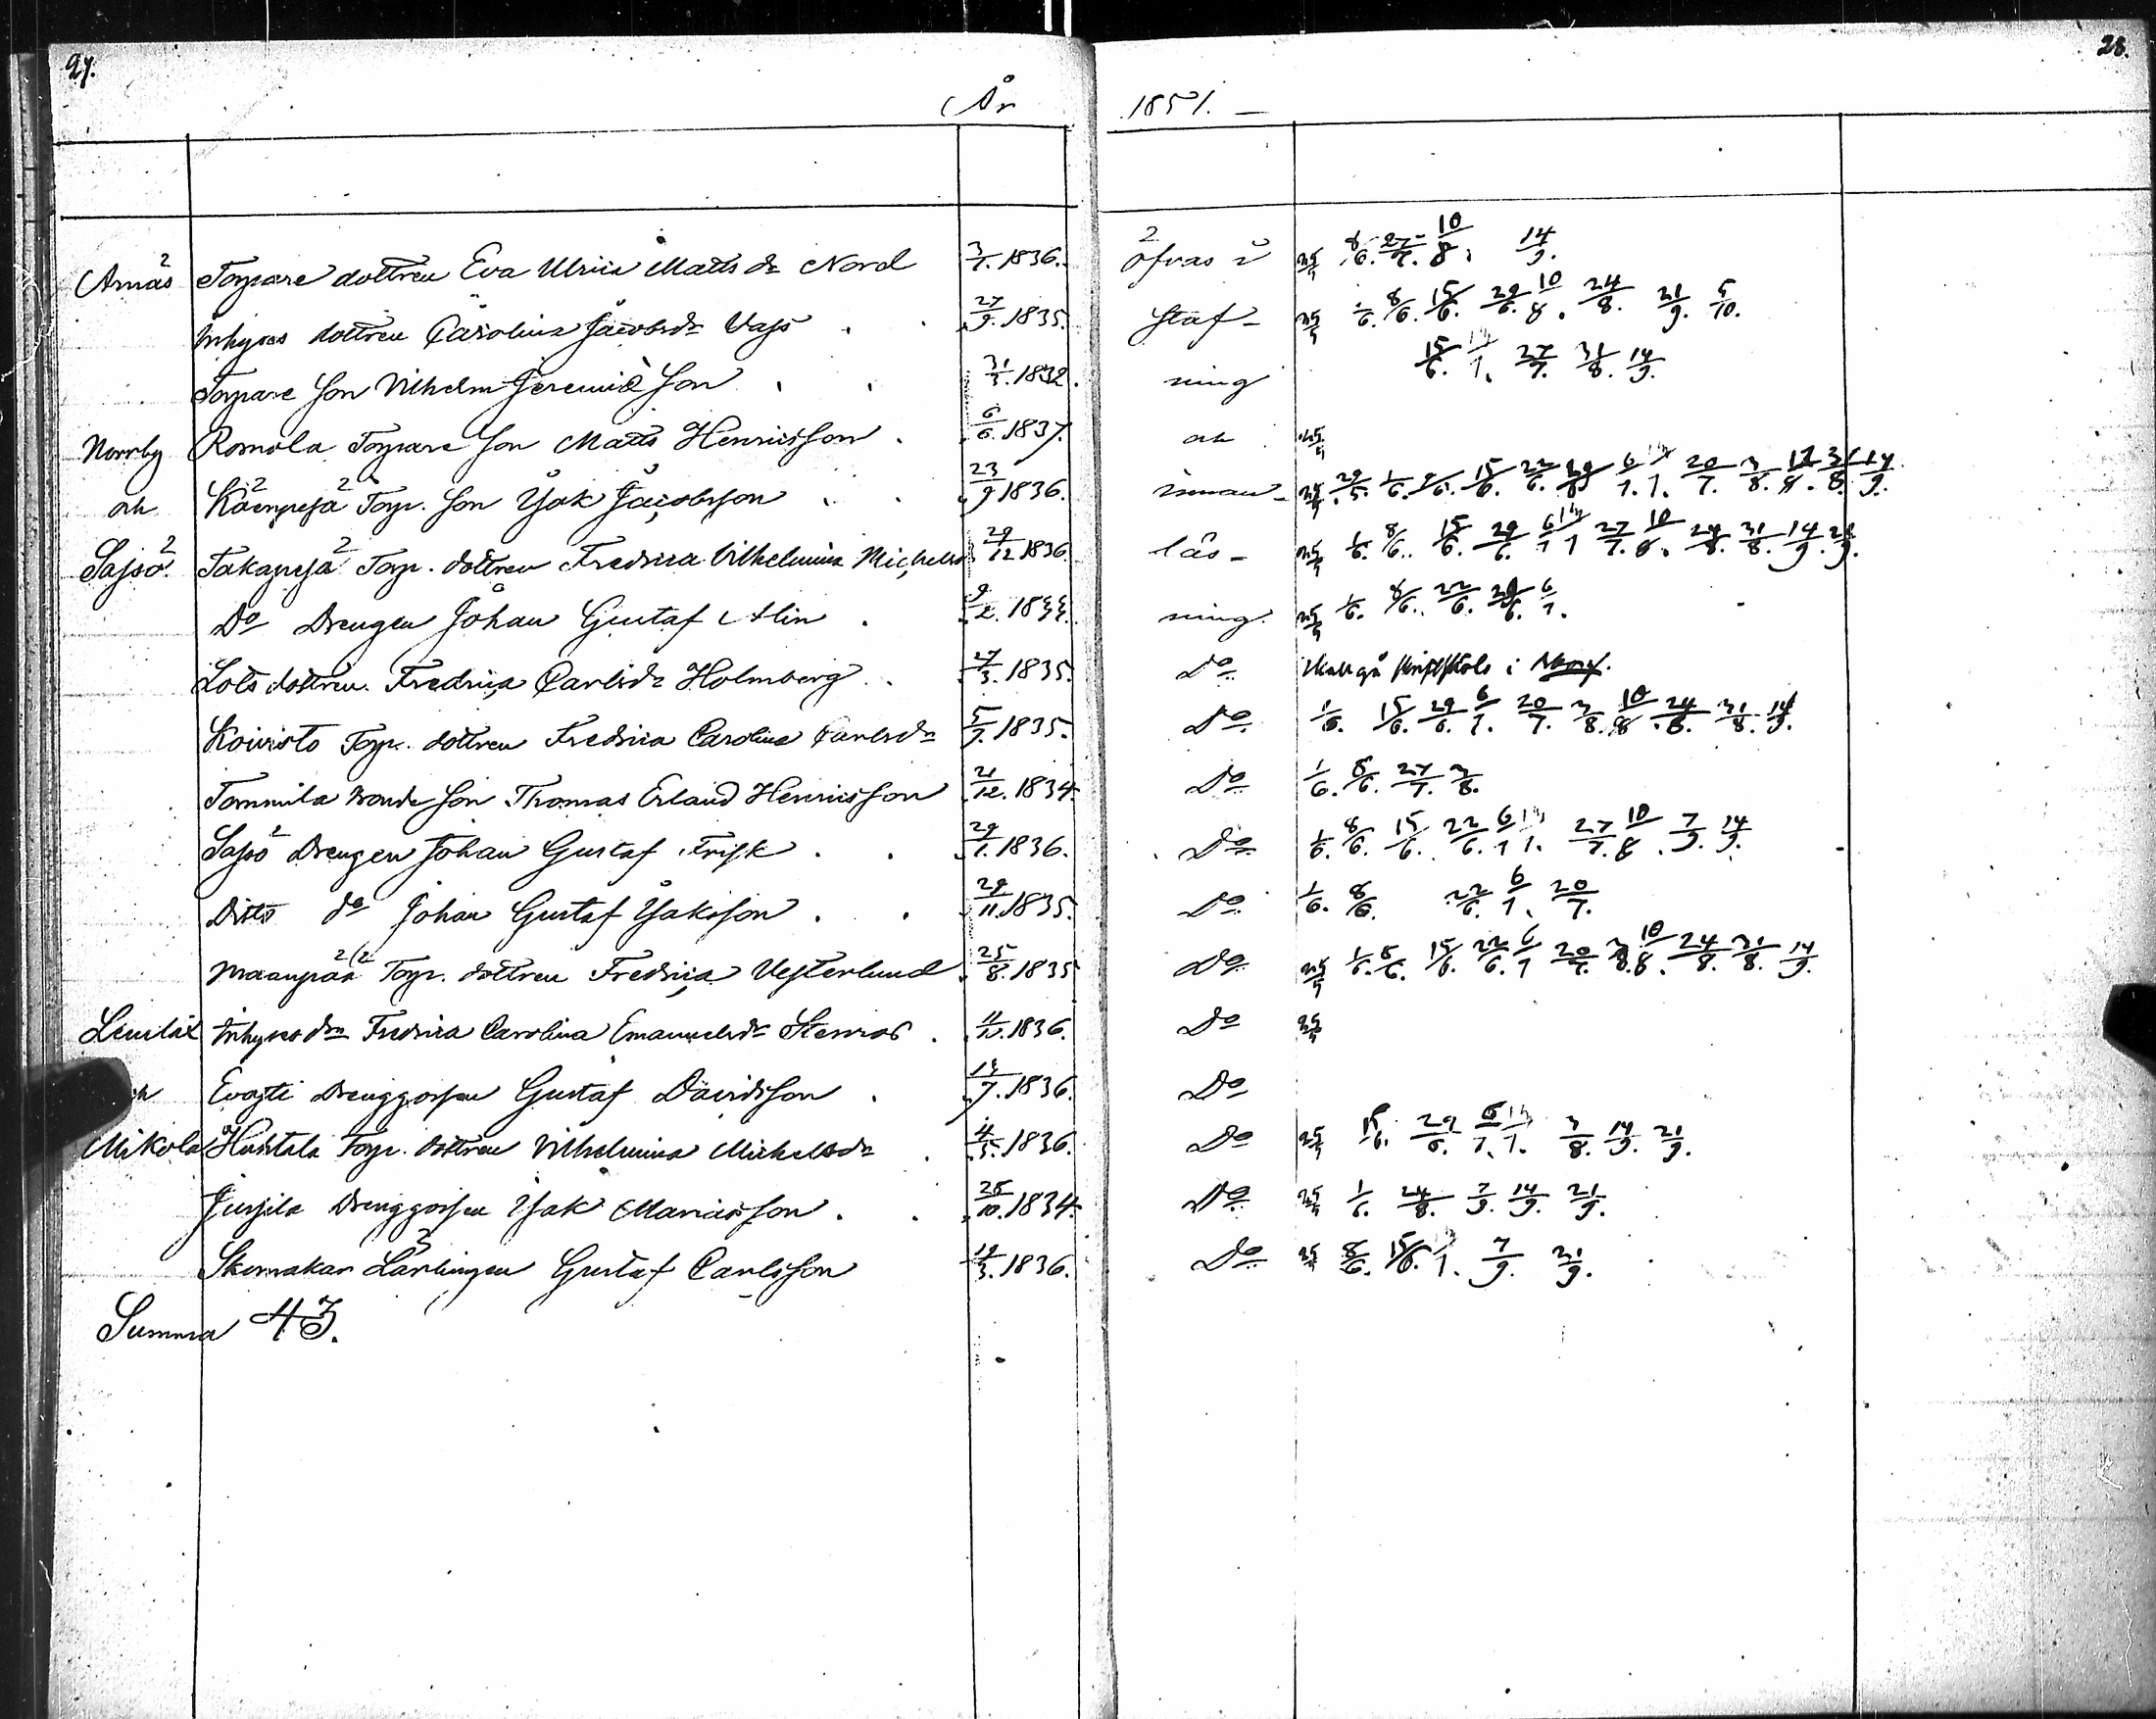 27. 28.
År 1851. —
Arnäs Torpare dottren Eva Ulrica Matts dr Nord 3/7. 1836. öfvas i 8/6. 27/7. 10/8. 14/9.
Inhyses dottren Carolina Jacobsdr Vass 27/9. 1835. staf- 1/6. 8/6. 15/6. 29/6. 10/8. 24/8. 21/9. 5/10.
Torpare Son Vilhelm Jeremiæ Son 31/3. 1832. ning 15/6. 27/7. 31/8. 14/9.
Norrby Romola Torpare Son Matts Henricsson 6/6. 1837. och
och Käenpesä Torp. Son Isak Jacobsson 23/9 1836. innan- 15/6. 22/6. 20/7. 3/8. 31/8. 14/9.
Sajsö. Takapesä Torp. dottren Fredrica Vilhelmina Michelsd 29/12 1836. läs- 8/6. 15/6. 29/6. 27/7. 10/8. 24/8. 31/8. 14/9. 21/9.
Do Drengen Johan Gustaf Alin 9/2. 1833. ning. 1/6. 8/6. 22/6. 29/6. 6/7.
Lots dottren Fredrica Carlsdr Holmberg 27/3. 1835. Do Skall gå skriftskola i
Koivisto Torp. dottren Fredrica Carolina Carlsdr 5/7. 1835. Do 1/6. 15/6. 29/6. 6/7. 20/7. 3/8. 10/8. 24/8. 31/8. 14/9.
Tommila Bonde Son Thomas Erland Henricsson 21/12. 1834. Do 1/6. 8/6. 27/7. 3/8.
Sajsö Drengen Johan Gustaf Frisk 29/7. 1836. Do 1/6. 8/6. 15/6. 22/6. 6/7. 27/7. 10/8. 7/9. 14/9.
Ditto do Johan Gustaf Isaksson 29/11. 1835. Do 1/6. 8/6. 22/6. 6/7. 20/7.
Maanpää Torp. dottren Fredrica Vesterlund 25/8. 1835 Do 1/6. 8/6. 15/6. 22/6. 6/7 20/7. 3/8. 10/8. 24/8. 31/8. 14/9.
Lautilax Inhyses dr Fredrica Carolina Emanuelsdr Stenros 1836. Do
Evasti Drenggossen Gustaf Davidsson 13/7. 1836. Do
Mikola Huhtala Torp. dottren Vilhelmina Michelsdr 4/5. 1836. Do 15/6. 29/6. 6/7. 3/8. 14/9. 21/9.
Jussila Drenggossen Isak Mariasson 25/10. 1834. Do 1/6. 24/8. 7/9. 14/9. 21/9.
Skomakar Lärlingen Gustaf Carlsson 19/3. 1836. Do 8/6. 15/6. 7/9. 21/9.
Summa 43.